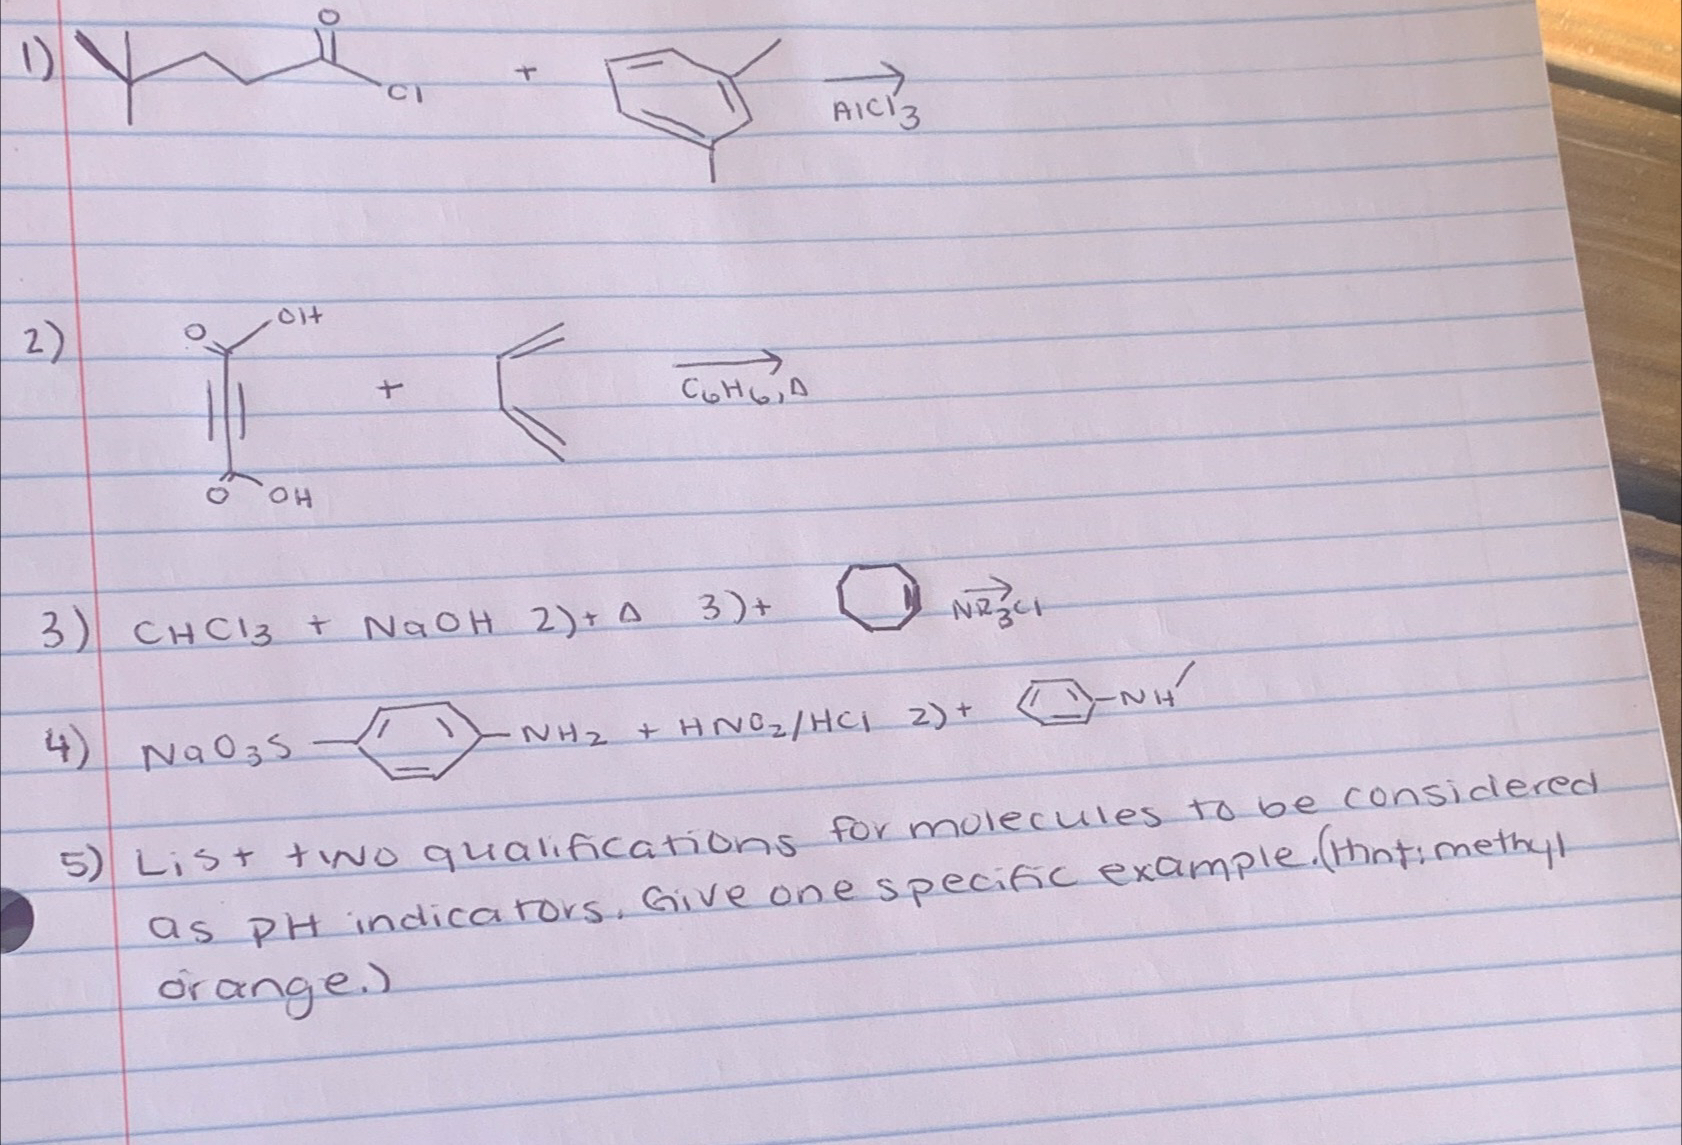 1) O Cl + AlCl3
2) O OH + C6H6, Δ
O OH
3) CHCl3 + NaOH 2)+ Δ 3)+ NR3Cl
4) NaO3S NH2 + HNO2/HCl 2)+ NH
5) List two qualifications for molecules to be considered
as pH indicators. Give one specific example. (Hint: methyl
orange.)